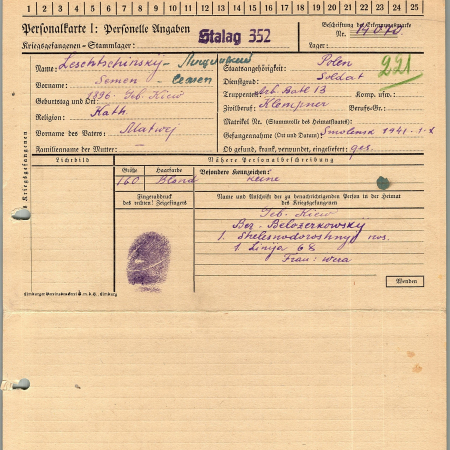 1 2 3 4 5 6 7 8 9 10 11 12 13 14 15 16 17 18 19 20 21 22 23 24 25
Personalkarte I: Personelle Angaben
Kriegsgefangenen-Stammlager: Stalag 352
Beschriftung der Erkennungsmarke
Nr. 14070
Lager:
Name: Leschtschinsky-
Vorname: Semen - Семен
Geburtstag und Ort: 1896. Geb. Kiew
Religion: Kath.
Vorname des Vaters: Matwej
Familienname der Mutter: —
Staatsangehörigkeit: Polen
221
Dienstgrad: Soldat
Truppenteil: Arb. Batl 13 Komp. usw.:
Zivilberuf: Klempner Berufs-Gr.:
Matrikel Nr. (Stammrolle des Heimatstaates):
Gefangennahme (Ort und Datum): Smolensk 1941
Ob gefund, krank, verwundet, eingeliefert: ges.
Lichtbild
Nähere Personalbeschreibung
Größe Haarfarbe
160 Blond
Besondere Kennzeichen:
keine
Fingerabdruck
des rechten! Zeigefingers
Name und Anschrift der zu benachrichtigenden Person in der Heimat
des Kriegsgefangenen
Geb. Kiew
Bez. Belozerkowskij
1. Shelesnodoroshnyj
1 Linija 68
Frau: Wera
Wenden
Limburger Vereinsdruckerei G.m.b.H., Limburg
Kriegsgefangenen